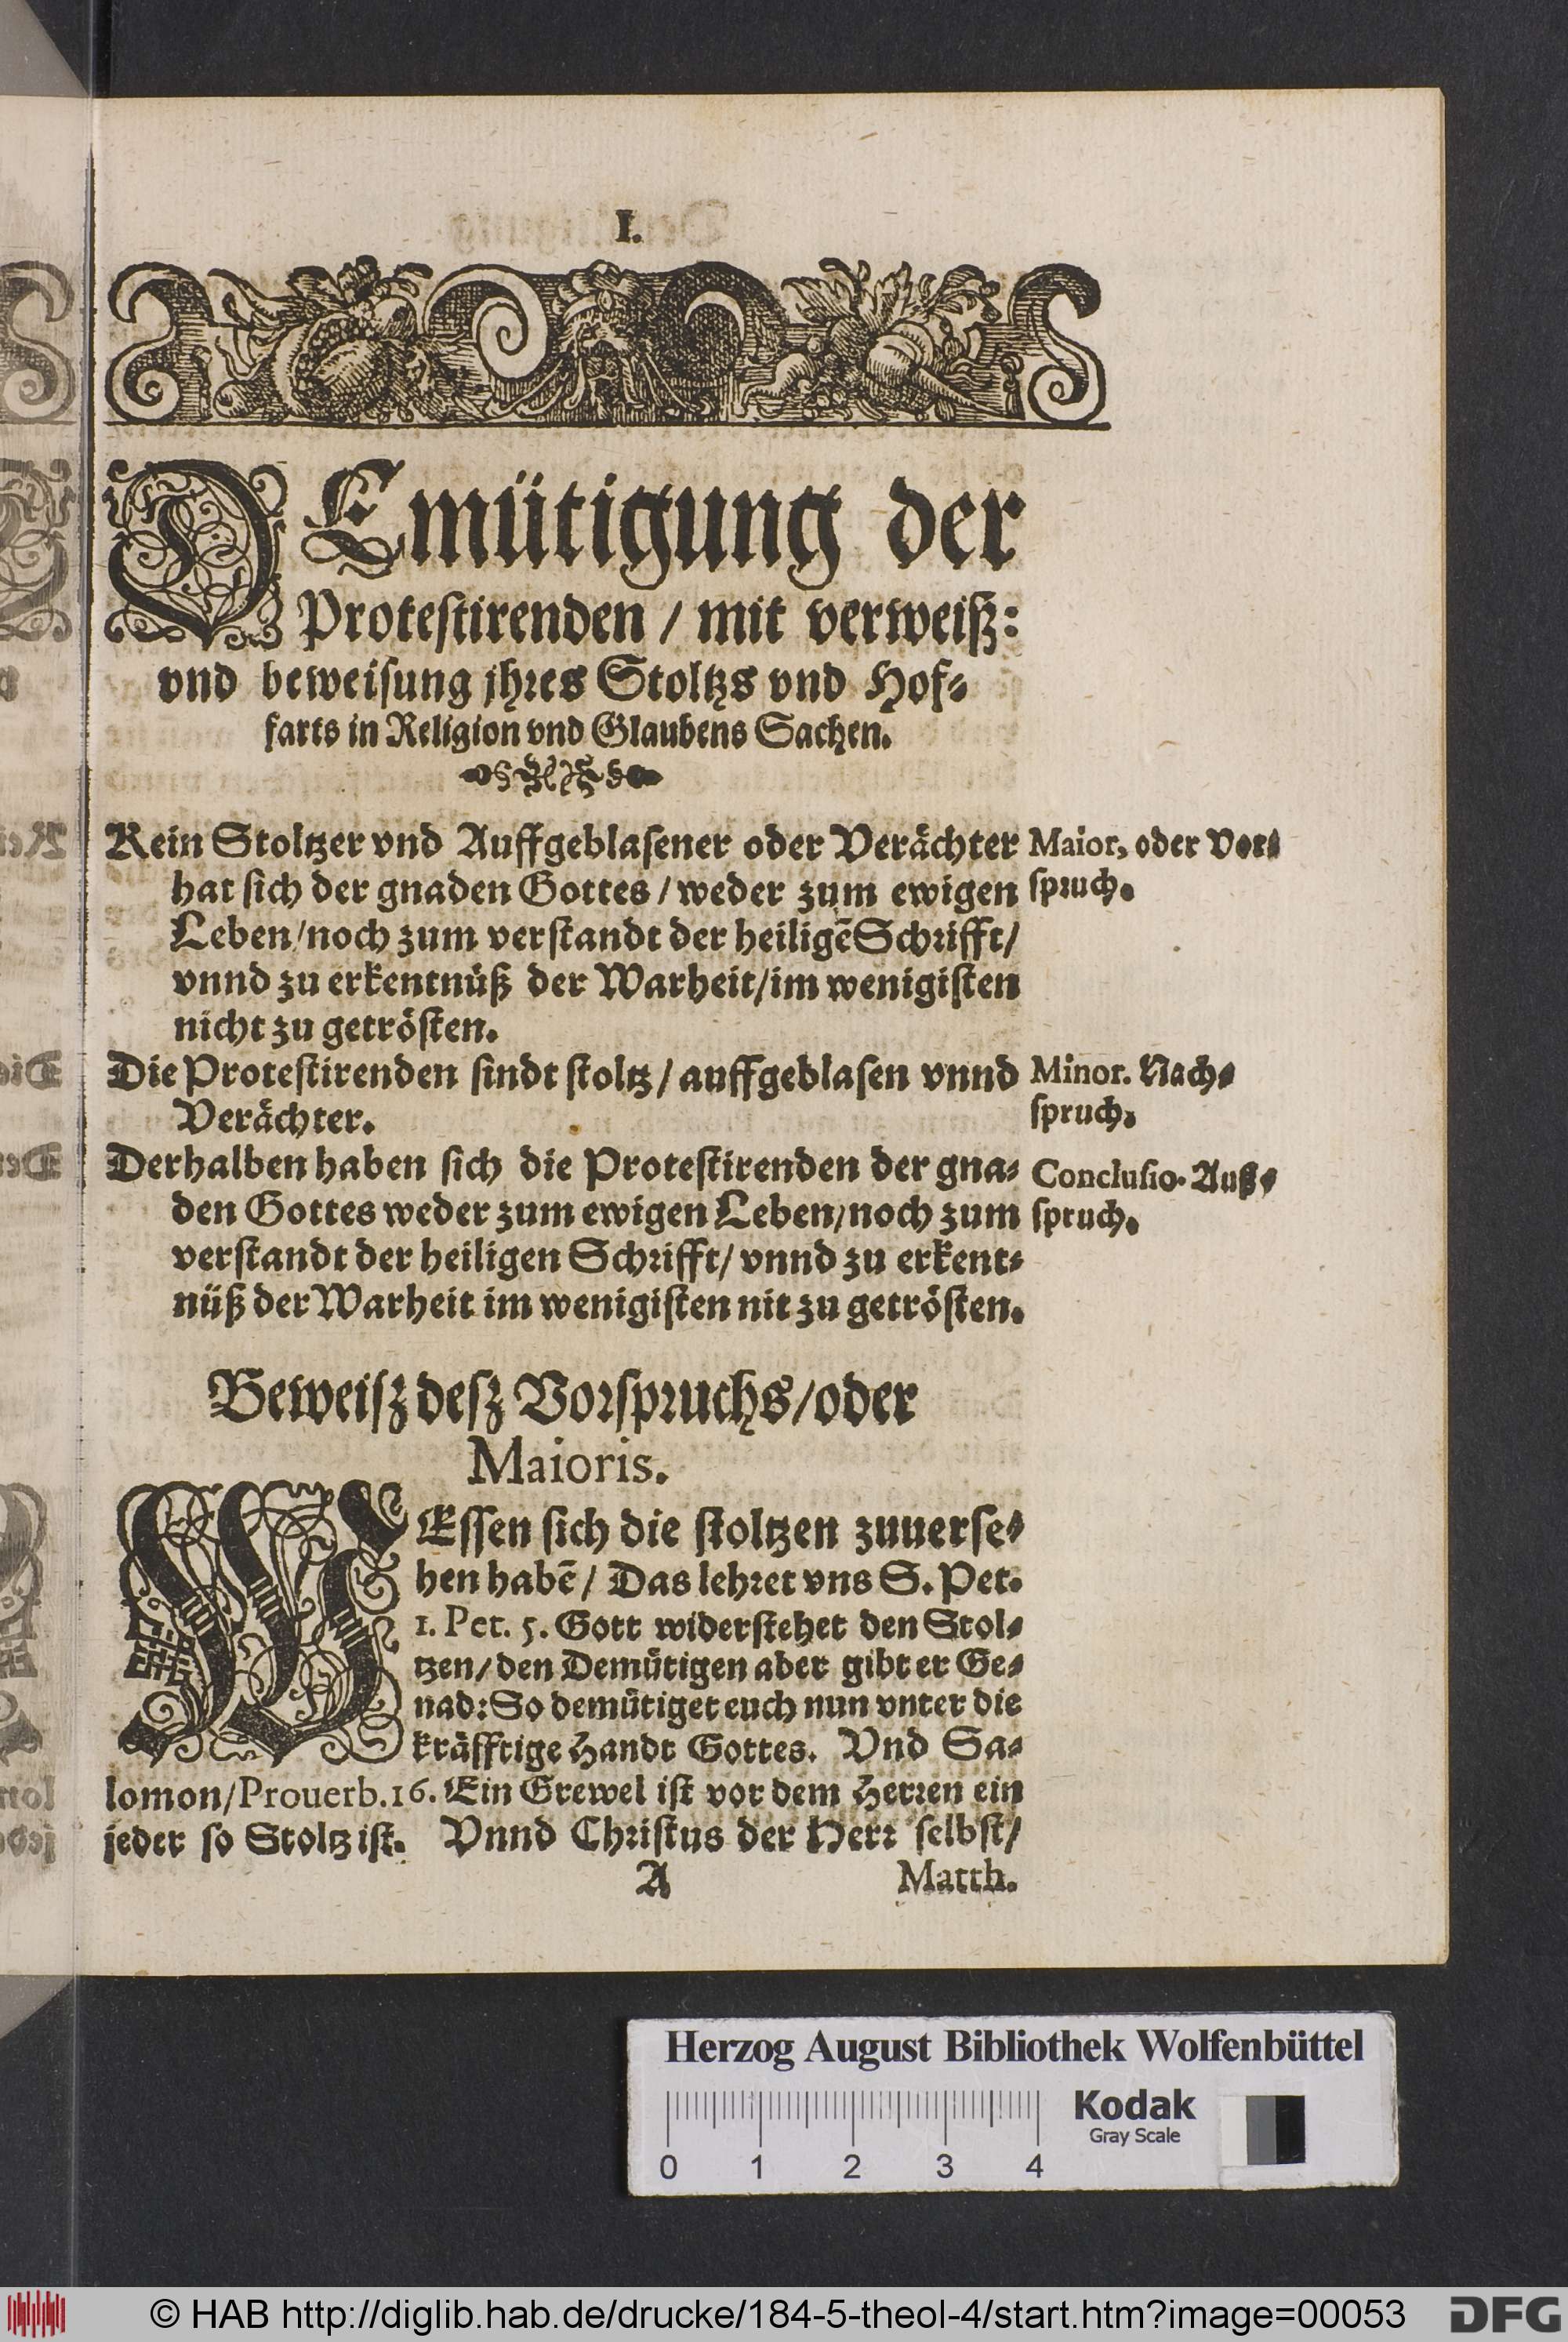 I.
DEmütigung der
Protestirenden / mit verweiß:
vnd beweisung jhres Stoltzs vnd Hof-
farts in Religion vnd Glaubens Sachen.
Kein Stoltzer vnd Auffgeblasener oder Verächter
hat sich der gnaden Gottes / weder zum ewigen
Leben/noch zum verstandt der heiligẽ Schrifft/
vnnd zu erkentnüß der Warheit/im wenigisten
nicht zu getrösten.
Maior, oder Vor-
spruch.
Die Protestirenden sindt stoltz / auffgeblasen vnnd
Verächter.
Minor. Nach-
spruch.
Derhalben haben sich die Protestirenden der gna-
den Gottes weder zum ewigen Leben/noch zum
verstandt der heiligen Schrifft/ vnnd zu erkent-
nüß der Warheit im wenigisten nit zu getrösten.
Conclusio. Auß-
spruch.
Beweiß deß Vorspruchs/oder
Maioris.
WEssen sich die stoltzen zuuerse-
hen habẽ / Das lehret vns S. Pet.
1. Pet. 5. Gott widerstehet den Stol-
tzen/den Demütigen aber gibt er Ge-
nad: So demütiget euch nun vnter die
kräfftige Handt Gottes. Vnd Sa-
lomon/Prouerb.16. Ein Grewel ist vor dem Herren ein
jeder so Stoltz ist. Vnnd Christus der Herr selbst/
A Matth.
Herzog August Bibliothek Wolfenbüttel
Kodak
Gray Scale
0 1 2 3 4
© HAB http://diglib.hab.de/drucke/184-5-theol-4/start.htm?image=00053
DFG